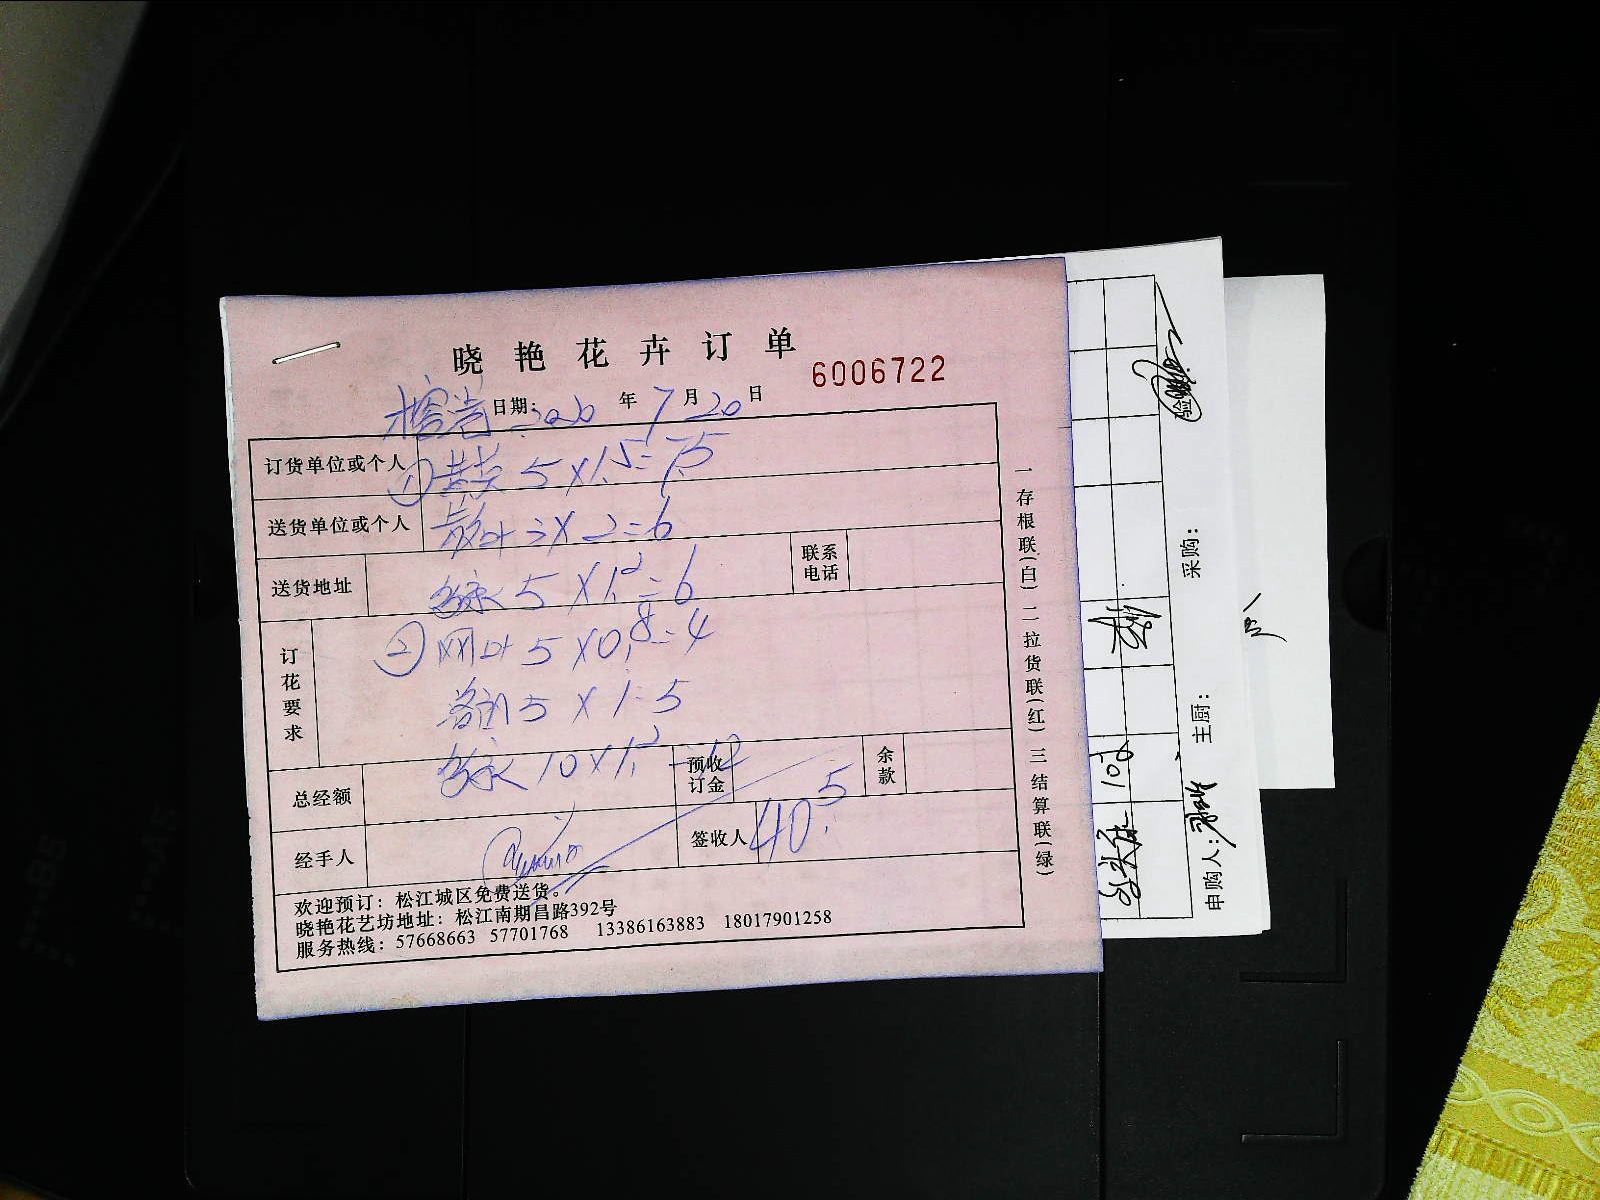 晓艳花卉订单
6006722
日期: 2020 年 7 月 20 日
订货单位或个人
① 5×1.5=7.5
送货单位或个人
散叶 3×2=6
送货地址
5×1.2=6
联系电话
订花要求
② 网叶 5×0.8=4
5×1=5
10×1.2=12
总经额
预收订金
余款
经手人
签收人
40.5
欢迎预订：松江城区免费送货。
晓艳花艺坊地址：松江南期昌路392号
服务热线：57668663 57701768 13386163883 18017901258
一存根联(白) 二拉货联(红) 三结算联(绿)
采购:
主厨:
申购人:
100